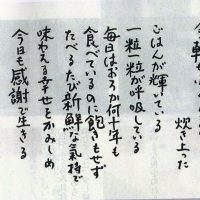 炊き上った
ごはんが輝いている
一粒一粒が呼吸している
毎日はおろか何十年も
食べているのに飽きもせず
たべるたび新鮮な気持で
味わえる幸せをかみしめ
今日も感謝で生きる